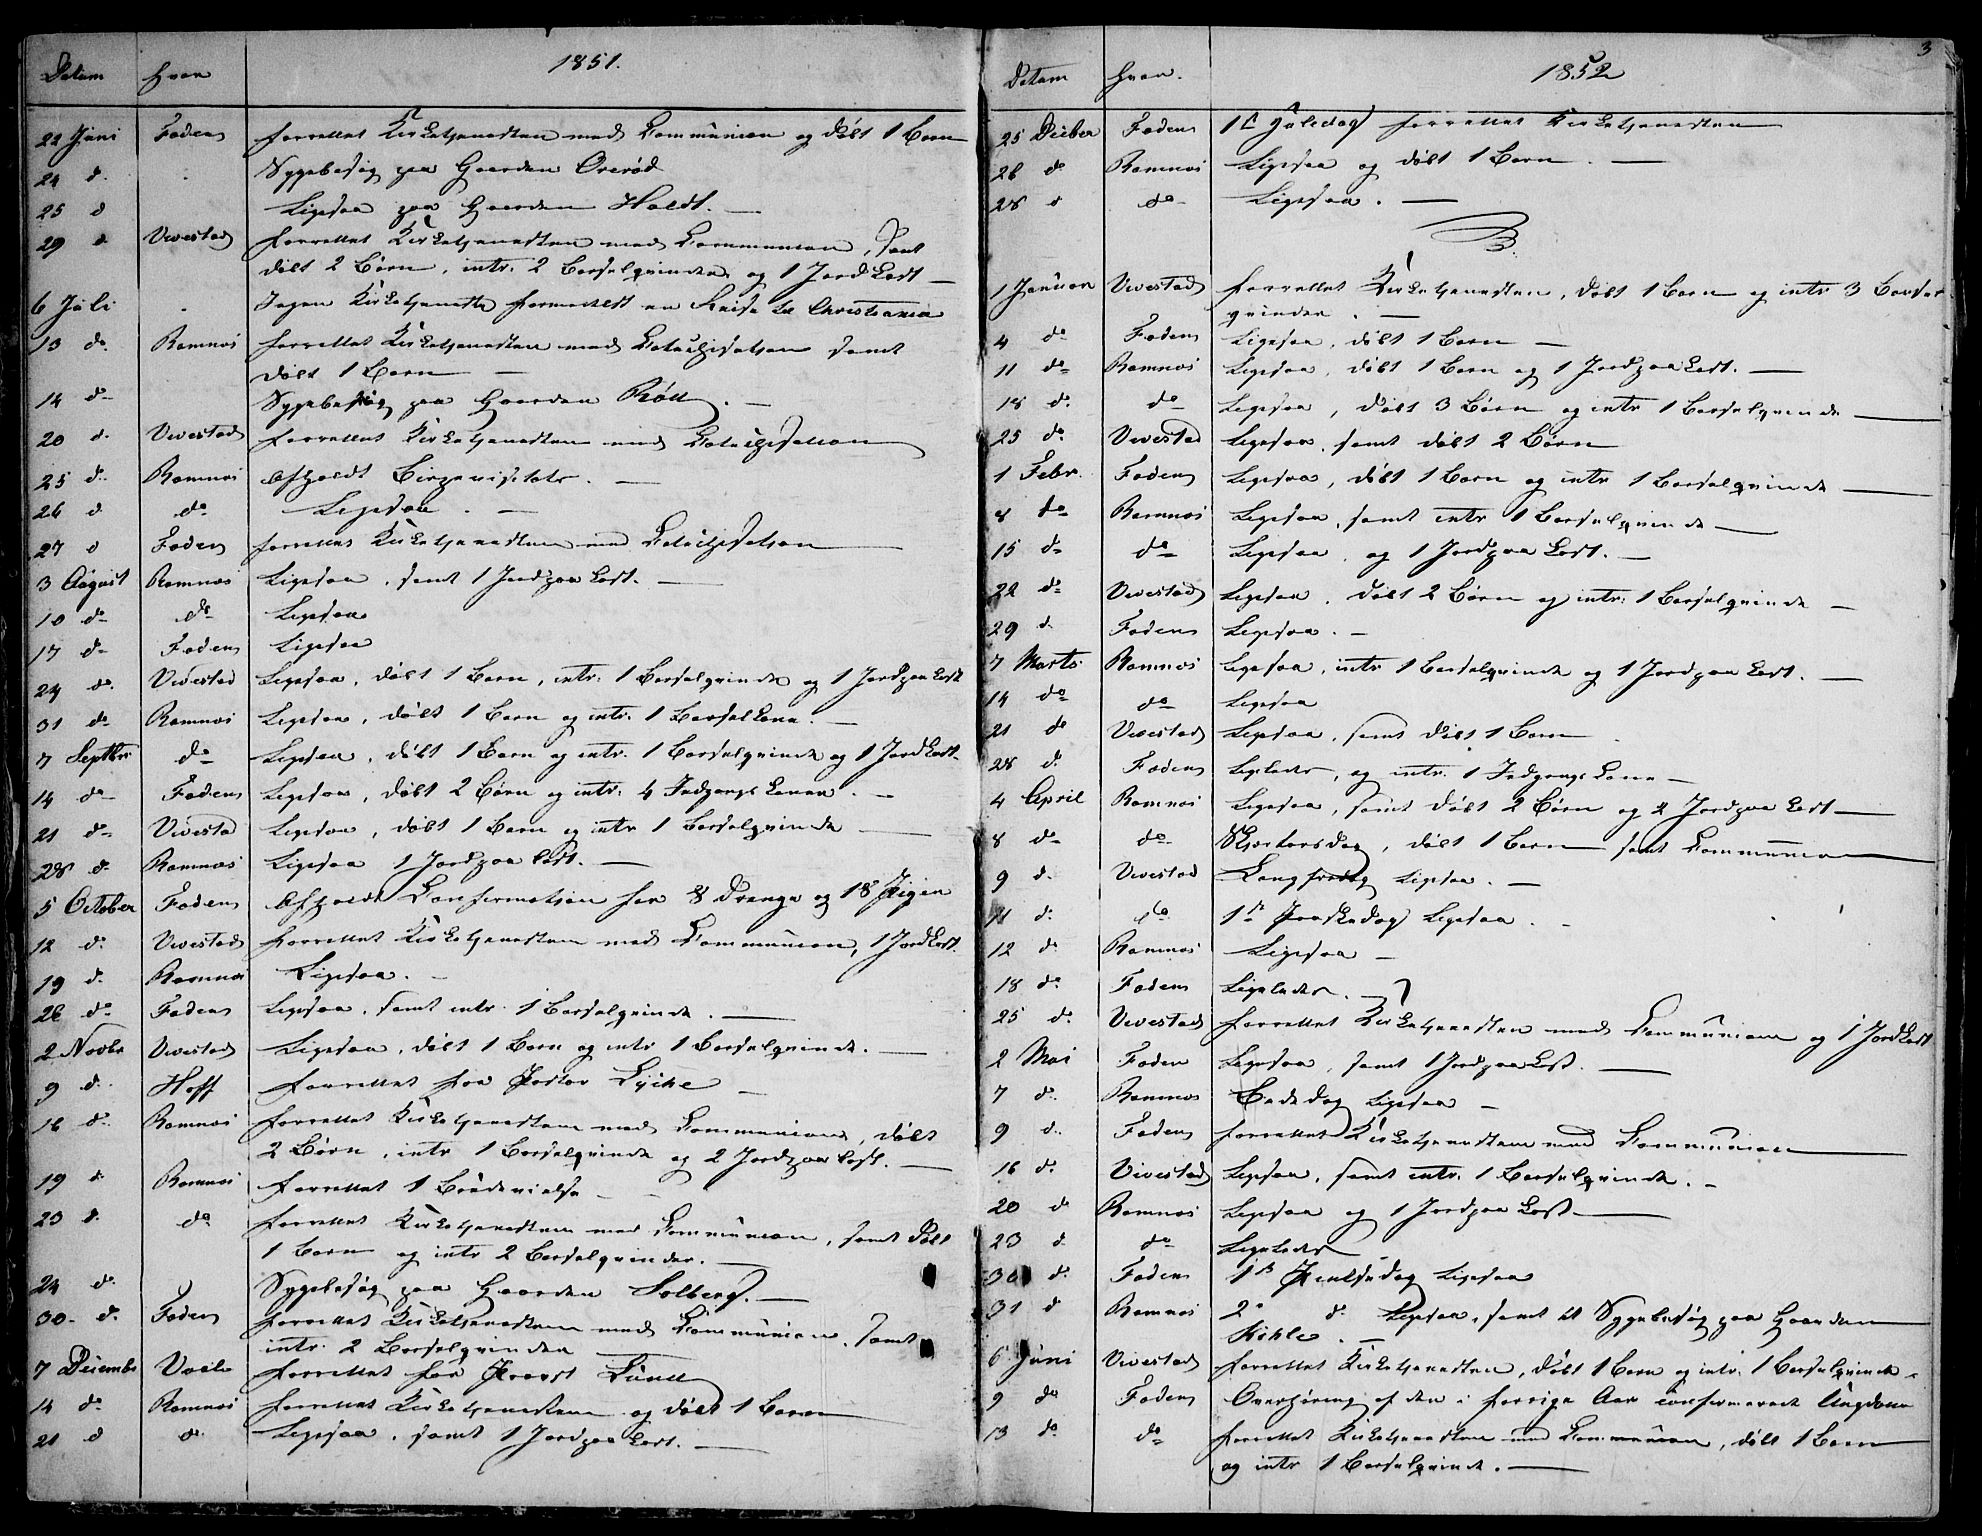 Datum hvor 1851.
22 Juni Fodens forrettet Kirketjenesten med Communion og døbt 1 Barn
24 d. Sygebesøg paa Gaarden Ørerød
25 d Ligesaa paa Gaarden Holdt.
29 d. Vivestad forrettet Kirketjenesten med Communion, samt
døbt 2 Børn, intr. 2 Barselqvinder og 1 Jord Kast
6 Juli Ingen Kirketjeneste formedelst en Reise til Christiania
13 do. Ramnæs forrettet Kirketjenesten med Catechisation samt
døbt 1 Barn
14 do Sygebesøg paa Gaarden Röll.
20 d. Vivestad forrettet Kirketjenesten med Catechisation
25 d. Ramnæs Afholdt Bispevisitats.
26 d do Ligesaa.
27 d Fodens forrettet Kirketjenesten med Catechisation
3 August Ramnæs Ligesaa, samt 1 Jordpaa Kast.
10 do do Ligesaa
17 do Fodens Ligesaa
24 do. Vivestad Ligesaa, døbt 1 Barn, intr. 1 Barselqvinde og 1 Jordpaa Kast
31 do Ramnæs Ligesaa, døbt 1 Barn og intr. 1 Barselkone.
7 Septbr do Ligesaa, døbt 1 Barn og intr. 1 Barselqvinde og 1 Jord Kast.
14 do Fodens Ligesaa, døbt 2 Børn og intr. 4 Indgangs Koner.
21 do Vivestad Ligesaa, døbt 1 Barn og intr 1 Barselqvinde
28 d. Ramnæs Ligesaa 1 Jordpaa Kast.
5 October Fodens Afholdt Confirmation for 8 Drenge og 18 Piger
12 d. Vivestad forrettet Kirketjenesten med Communion, 1 Jord Kast.
19 d. Ramnæs Ligesaa.
26 do Fodens Ligesaa, samt intr. 1 Barselqvinde.
2 Novbr Vivestad Ligesaa, døbt 1 Barn og intr 1 Barselqvinde.
9 d. Hoff forrettet for Pastor Lyche
16 d. Ramnæs forrettet Kirketjenesten med Communion, døbt
2 Børn, intr 1 Barselqvinde og 2 Jordpaa Kast.
19 d. Ramnæs forrettet 1 Brudevielse
23 d. do forrettet Kirketjenesten med Communion, samt døbt
1 Barn og intr 2 Barselqvinder.
24 do Sygebesøg paa Gaarden Solberg.
30. d. Fodens forrettet Kirketjenesten med Communion, samt
intr. 2 Barselqvinder
7 Decembr Vaale forrettet for Provst Lund
14 do Ramnæs forrettet Kirketjenesten og døbt 1 Barn
21 d d. Ligesaa, samt 1 Jordpaa Kast.
Datum hvor. 1852 3
25 Decber Fodens 1ste Juledag forrettet Kirketjenesten
26 do Ramnæs Ligesaa og døbt 1 Barn.
28 d do Ligesaa.
1 Januar Vivestad forrettet Kirketjenesten, døbt 1 Barn og intr 3 Barsel
qvinder.
4 do Fodens Ligesaa, døbt 1 Barn
11 do Ramnæs Ligesaa, døbt 1 Barn og 1 Jordpaa Kast.
18 do. do Ligesaa, døbt 3 Børn og intr 1 Barselqvinde
25 do. Vivestad Ligesaa, samt døbt 2 Børn
1 Febr. Fodens Ligesaa, døbt 1 Barn og intr 1 Barselqvinde
8 do Ramnæs Ligesaa, samt intr 1 Barselqvinde
15 do do Ligesaa, og 1 Jordpaa Kast.
22 do Vivestad Ligesaa, døbt 2 Børn og intr. 1 Barselqvinde
29 d. Fodens Ligesaa.
7 Marts Ramnæs Ligesaa, intr 1 Barselqvinde og 1 Jordpaa Kast.
14 do do Ligesaa
21 do Vivestad Ligesaa, samt døbt 1 Barn.
28 d. Fodens Ligeledes, og intr. 1 Indgangs Kone
4 April Ramnæs Ligesaa, samt døbt 2 Børn og 2 Jordpaa Kast
8 do do Skjærtorsdag, døbt 1 Barn samt Communion
9 d. Vivestad Langfredag Ligesaa.
11 d. do 1ste Paaskedag Ligesaa.
12 d. Ramnæs Ligesaa
18 do Fodens Ligeledes.
25 d. Vivestad forrettet Kirketjenesten med Communion og 1 Jord Kast
2 Mai Foden Ligesaa, samt 1 Jordpaa Kast.
7 d. Ramnæs Bededag Ligesaa
9 d. Fodens forrettet Kirketjenesten med Communion
16 d. Vivestad Ligesaa, samt intr. 1 Barselqvinde.
20 do Ramnæs Ligesaa og 1 Jordpaa Kast
23 d do Ligeledes
30 d. Fodens 1ste Pintsedag Ligesaa
31 d Ramnæs 2. d. Ligesaa, samt et Sygebesøg paa Gaarden
Kihle.
6 Juni Vivestad forrettet Kirketjenesten, døbt 1 Barn og intr. 1 Barselqvinde.
9 do Fodens Overhøring af den i forrige Aar confirmerede Ungdom
13 do do forrettet Kirketjenesten med Communion, døbt 1 Barn
og intr 1 Barselqvinde.